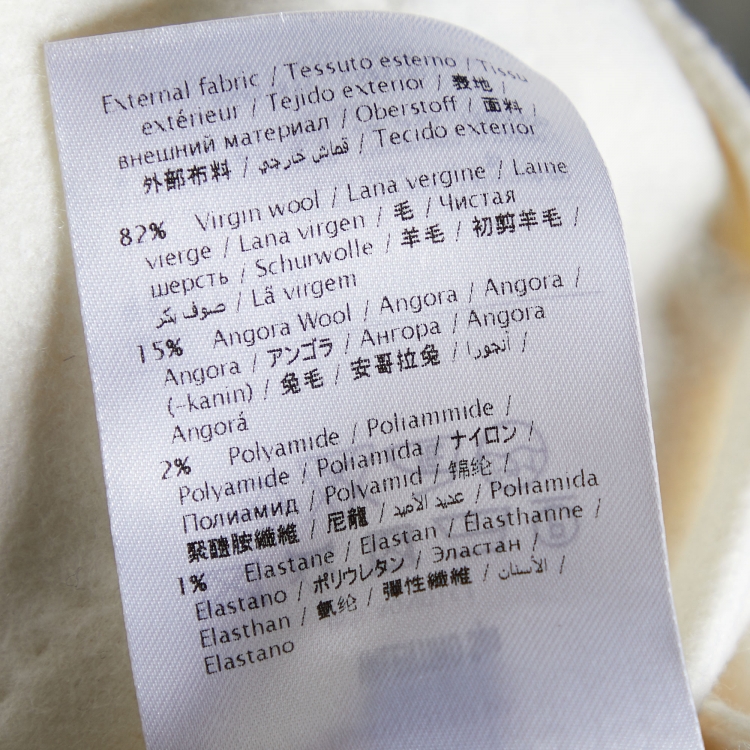 External fabric / Tessuto esterno / Tissu
extérieur / Tejido exterior / 表地 /
внешний материал / Oberstoff / 面料 /
外部布料 / قماش خارجي / Tecido exterior
82% Virgin wool / Lana vergine / Laine
vierge / Lana virgen / 毛 / Чистая
шерсть / Schurwolle / 羊毛 / 初剪羊毛 /
صوف بكر / Lã virgem
15% Angora Wool / Angora / Angora /
Angora / アンゴラ / Ангора / Angora
(-kanin) / 兔毛 / 安哥拉兔 / أنجورا /
Angorá
2% Polyamide / Poliammide /
Polyamide / Poliamida / ナイロン /
Полиамид / Polyamid / 锦纶 /
聚醯胺纖維 / 尼龍 / عديد الأميد / Poliamida
1% Elastane / Elastan / Élasthanne /
Elastano / ポリウレタン / Эластан /
Elasthan / 氨纶 / 彈性纖維 / الأستان /
Elastano